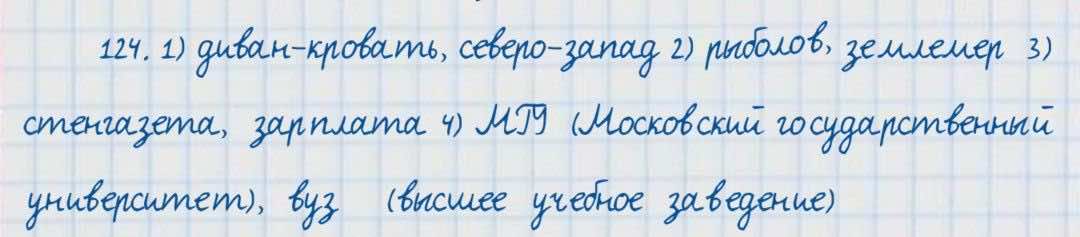 124. 1) диван-кровать, северо-запад 2) рыболов, землемер 3)
стенгазета, зарплата 4) МГУ (Московский государственный
университет), вуз (высшее учебное заведение)